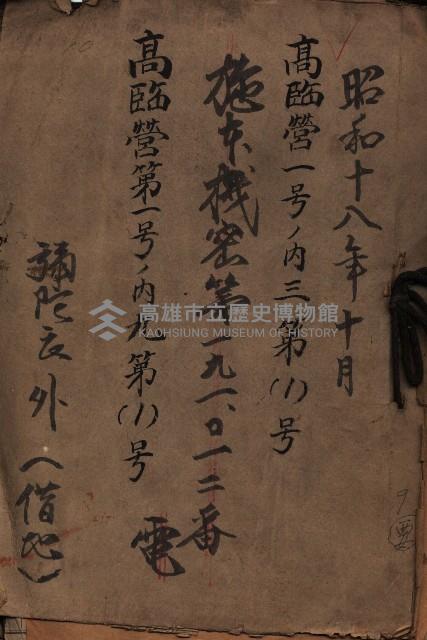 昭和十八年十月
高臨營一号ノ内三第(1)号
施本機密第一九一、〇一二番
高臨營第一号ノ内九第(1)号
電
彌陀庄外(借地)
高雄市立歷史博物館
KAOHSIUNG MUSEUM OF HISTORY